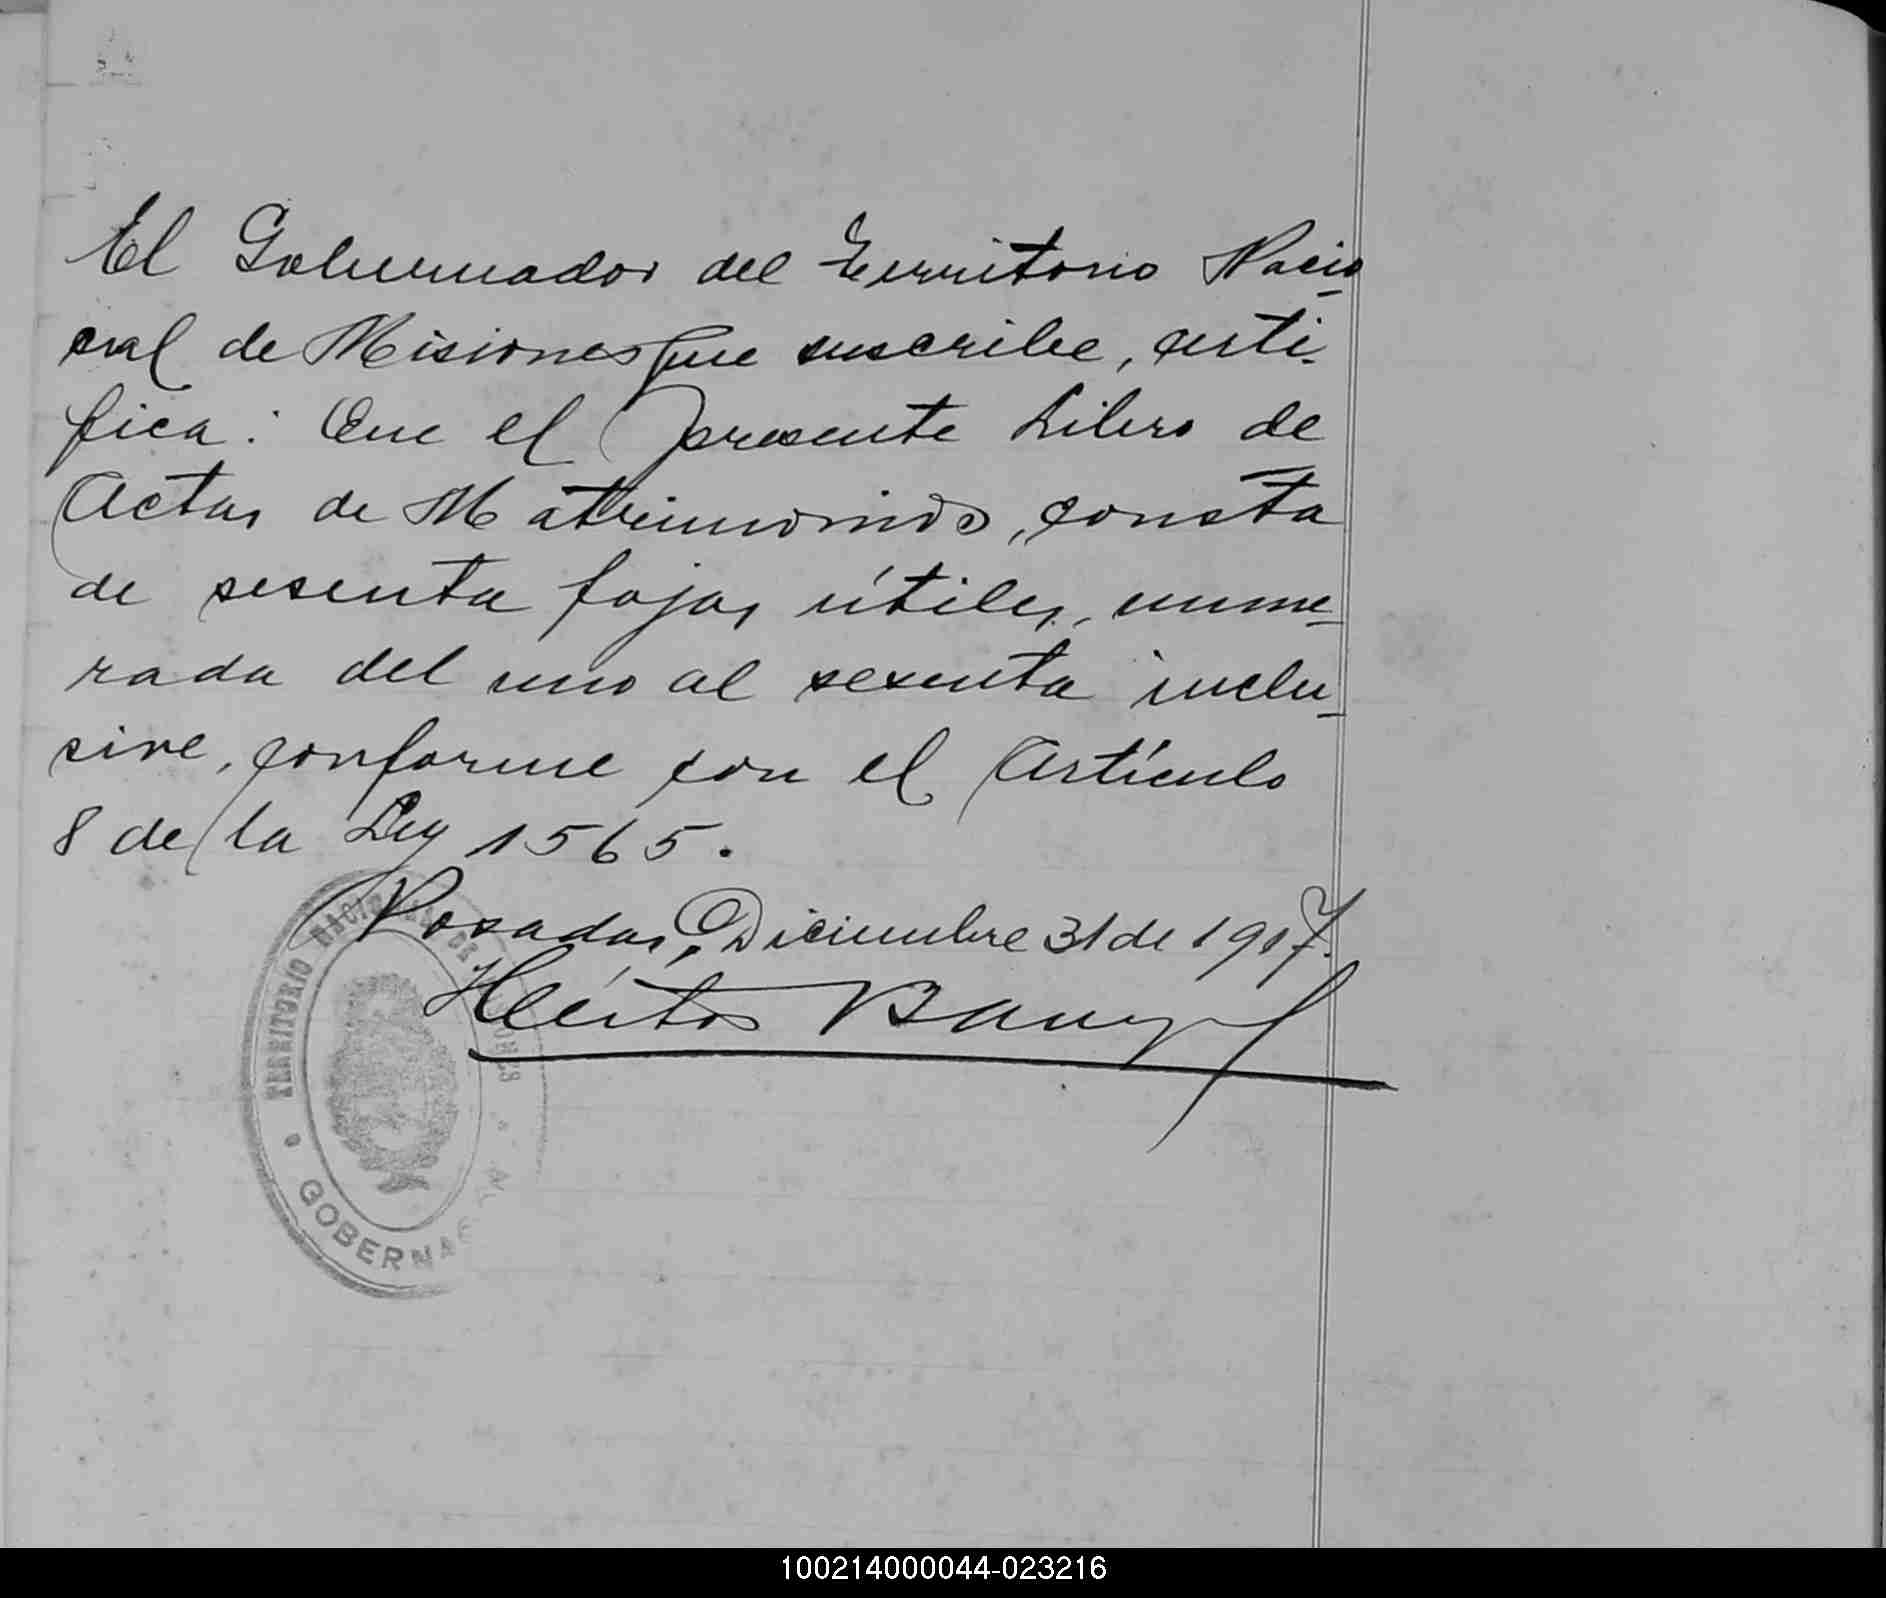 El Gobernador del Territorio Nacio-
nal de Misiones que suscribe, certi-
fica: Que el presente Libro de
Actas de Matrimonios, consta
de sesenta fojas útiles, nume-
rada del uno al sesenta inclu-
sive, conforme con el Artículo
8 de la Ley 1565.
Posadas, Diciembre 31 de 1917.
Héctor
TERRITORIO NACIONAL DE MISIONES
GOBERNA
100214000044-023216